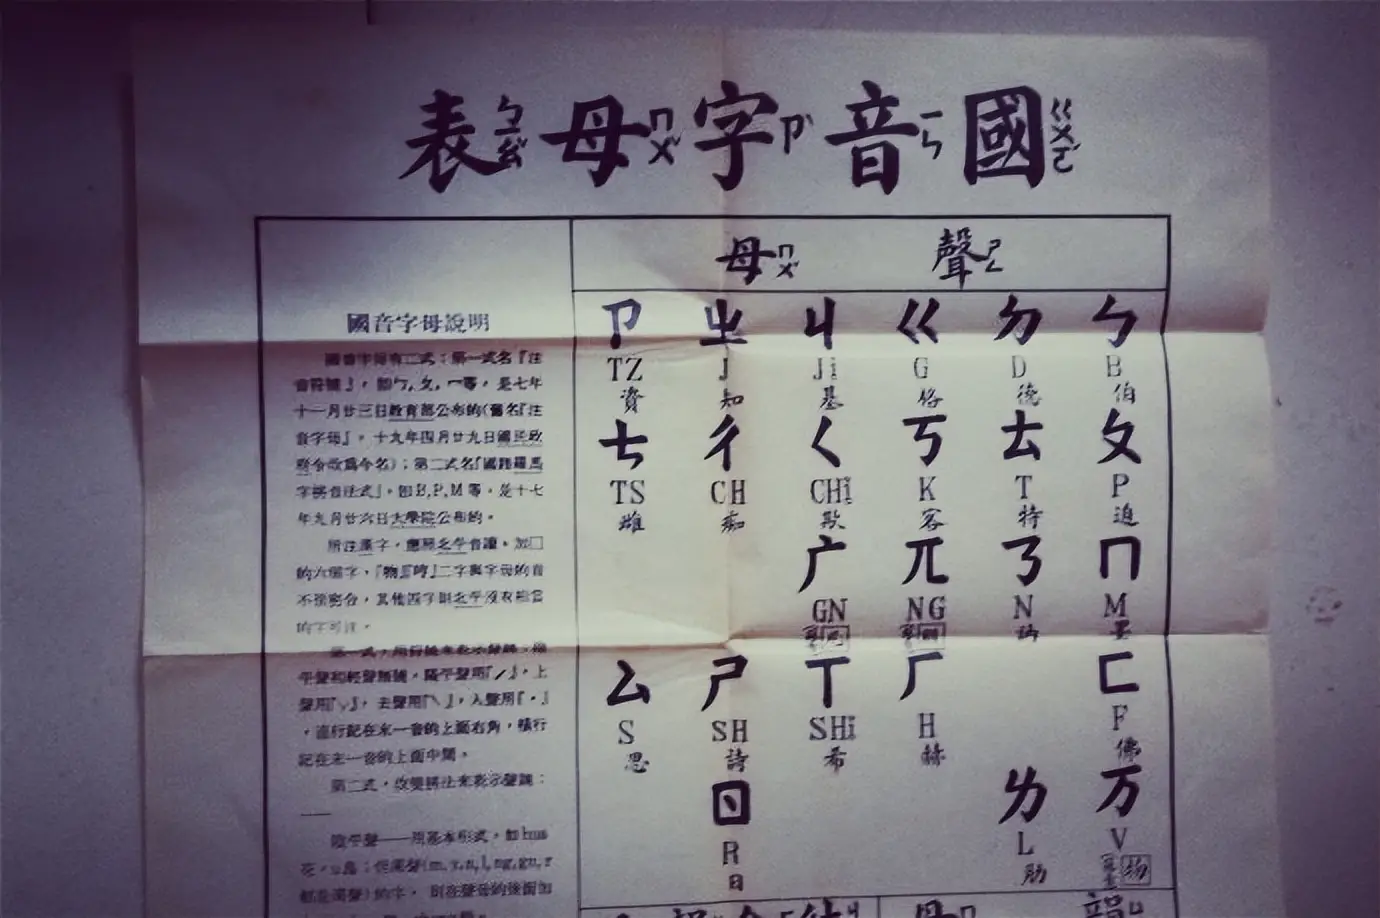 國ㄍㄨㄛˊ音ㄧㄣ字ㄗˋ母ㄇㄨˇ表ㄅㄧㄠˇ
聲ㄕㄥ母ㄇㄨˇ
ㄅ ㄉ ㄍ ㄐ ㄓ ㄗ
B D G Ji J TZ
伯 德 格 基 知 資
ㄆ ㄊ ㄎ ㄑ ㄔ ㄘ
P T K CHi CH TS
迫 特 客 欺 癡 雌
ㄇ ㄋ ㄫ ㄬ
M N NG GN
墨 訥
ㄈ ㄏ ㄒ ㄕ ㄙ
F H SHi SH S
佛 赫 希 詩 思
ㄪ ㄌ ㄖ
V L R
物 肋 日
國音字母說明
國音字母有二式：第一式名『注
音符號』，如ㄅ，ㄆ，ㄇ等，是七年
十一月廿三日教育部公布的（舊名『注
音字母』，十九年四月廿九日國民政
府令改爲今名）；第二式名『國語羅馬
字拼音法式』，如B,P,M等，是十七
年九月廿六日大學院公布的。
所注漢字，應照北平音讀。加囗
的六個字，『物』『哼』二字與字母的音
不很密合，其他四字則北平沒有相當
的字可注。
平聲和輕聲無號，陽平聲用『ˊ』，上
聲用『ˇ』，去聲用『ˋ』，入聲用『・』
，直行記在末一音的上面右角，橫行
記在末一音的上面中間。
第二式，改變拼法來表示聲調：
——
陰平聲——用基本形式，如hua
花，但濁聲(m,n,l,ng,gn,r
都是濁聲)的字，則在聲母的後面加
韻 母